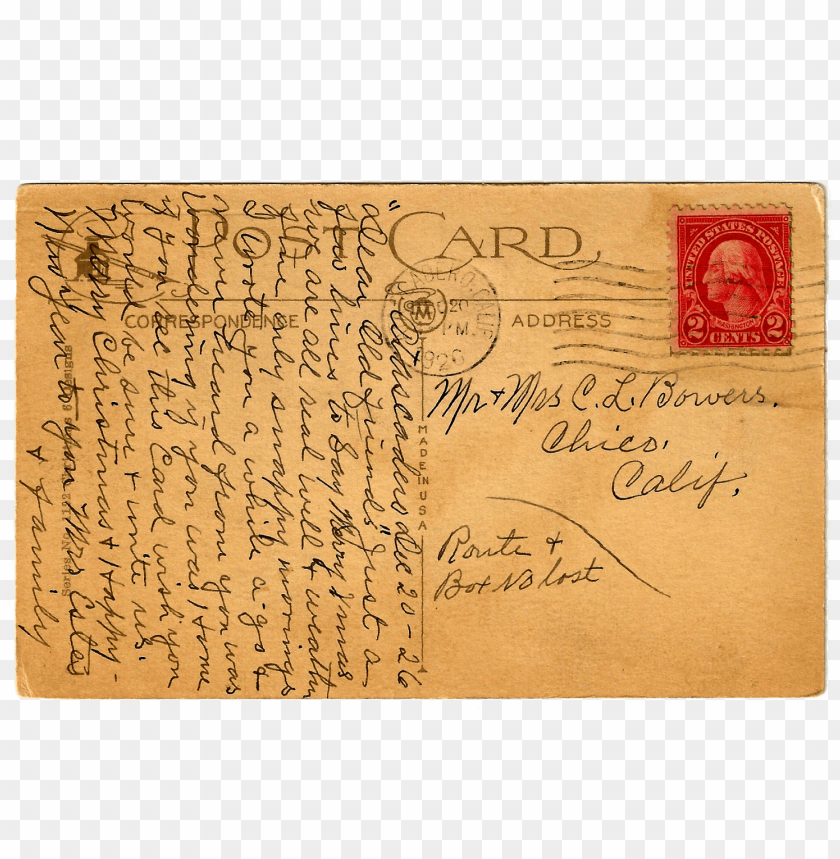 POST CARD
CORRESPONDENCE
ADDRESS
MADE IN USA
UNITED STATES POSTAGE
WASHINGTON
2 CENTS 2
CALIF
DEC 20
PM
1926
Series No.
Designs
Atascadero Dec 20-26
"Dear Old Friends" Just a
few lines to Say Merry Xmas
we are all real well & weather
fine only snappy mornings
I wrote you a while a-go &
never heard from you was
wondering if you was home
if you get this Card wish you
would be sure & write us.
Merry Christmas & Happy-
New year to you Mrs Estes
& Family
Mr & Mrs C. L. Bowers.
Chico,
Calif.
Route &
Box No lost